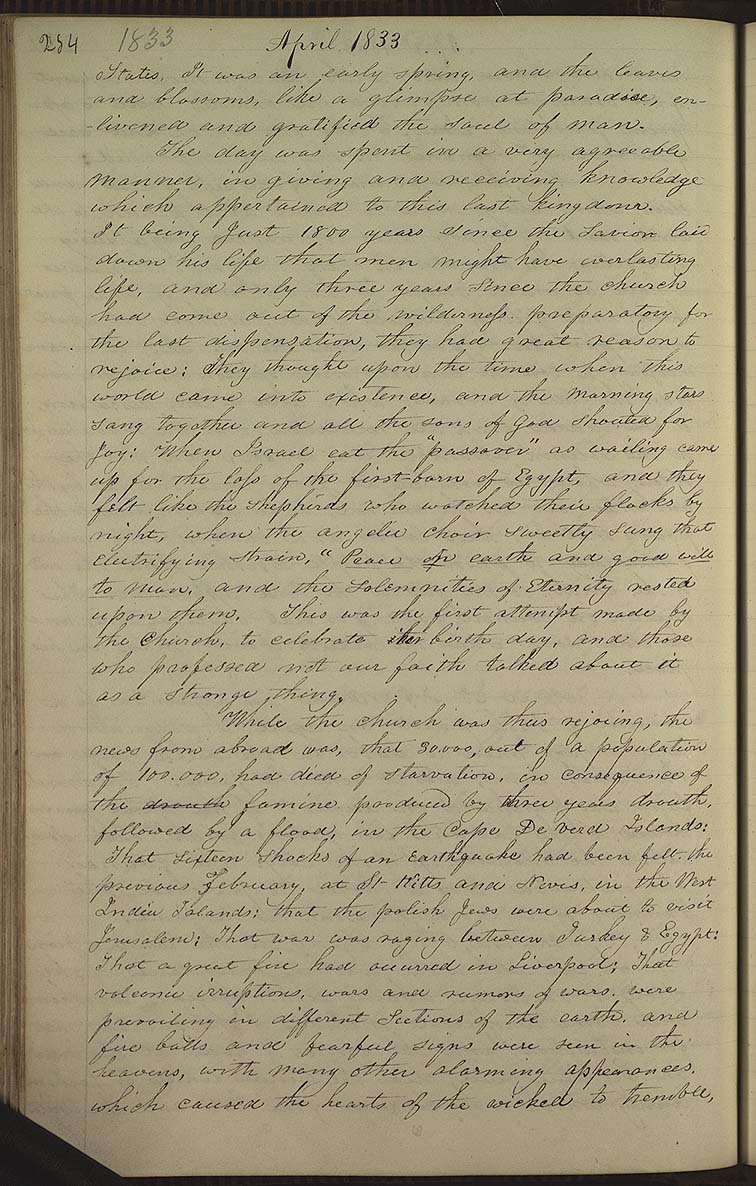 284 1833 April 1833 ....
States. It was an early spring, and the leaves
and blossoms, like a glimpse at paradise, en-
-livened and gratified the soul of man.
The day was spent in a very agreeable
manner, in giving and receiving knowledge
which appertained to this last kingdom.
It being Just 1800 years since the Savior laid
down his life that men might have everlasting
life, and only three years since the church
had come out of the wilderness. preparatory for
the last dispensation, they had great reason to
rejoice: They thought upon the time when this
world came into existence, and the Morning stars
sang together and all the sons of God shouted for
Joy: When Israel eat the "passover" as wailing came
up for the loss of the first-born of Egypt, and they
felt like the shepherds who watched their flocks by
night, when the angelic choir sweetly sung that
electrifying strain, "Peace on earth and good will
to Man, and the Solemnities of Eternity rested
upon them. This was the first attempt made by
the Church, to celebrate her birth day, and those
who professed not our faith talked about it
as a strange thing.
While the church was thus rejoicing, the
news from abroad was, that 30.000, out of a population
of 100.000, had died of starvation, in consequence of
the drouth famine produced by three years drouth,
followed by a flood, in the Cape De Verd Islands:
That Sixteen Shocks of an Earthquake had been felt. the
previous February, at St Kitts and Nevis, in the West
India Islands: that the polish Jews were about to visit
Jerusalem: That war was raging between Turkey & Egypt:
That a great fire had occurred in Liverpool; That
volcanic irruptions, wars and rumors of wars. were
prevailing in different Sections of the earth, and
fire balls and fearful signs were seen in the
heavens, with many other alarming appearances.
which caused the hearts of the wicked to tremble,